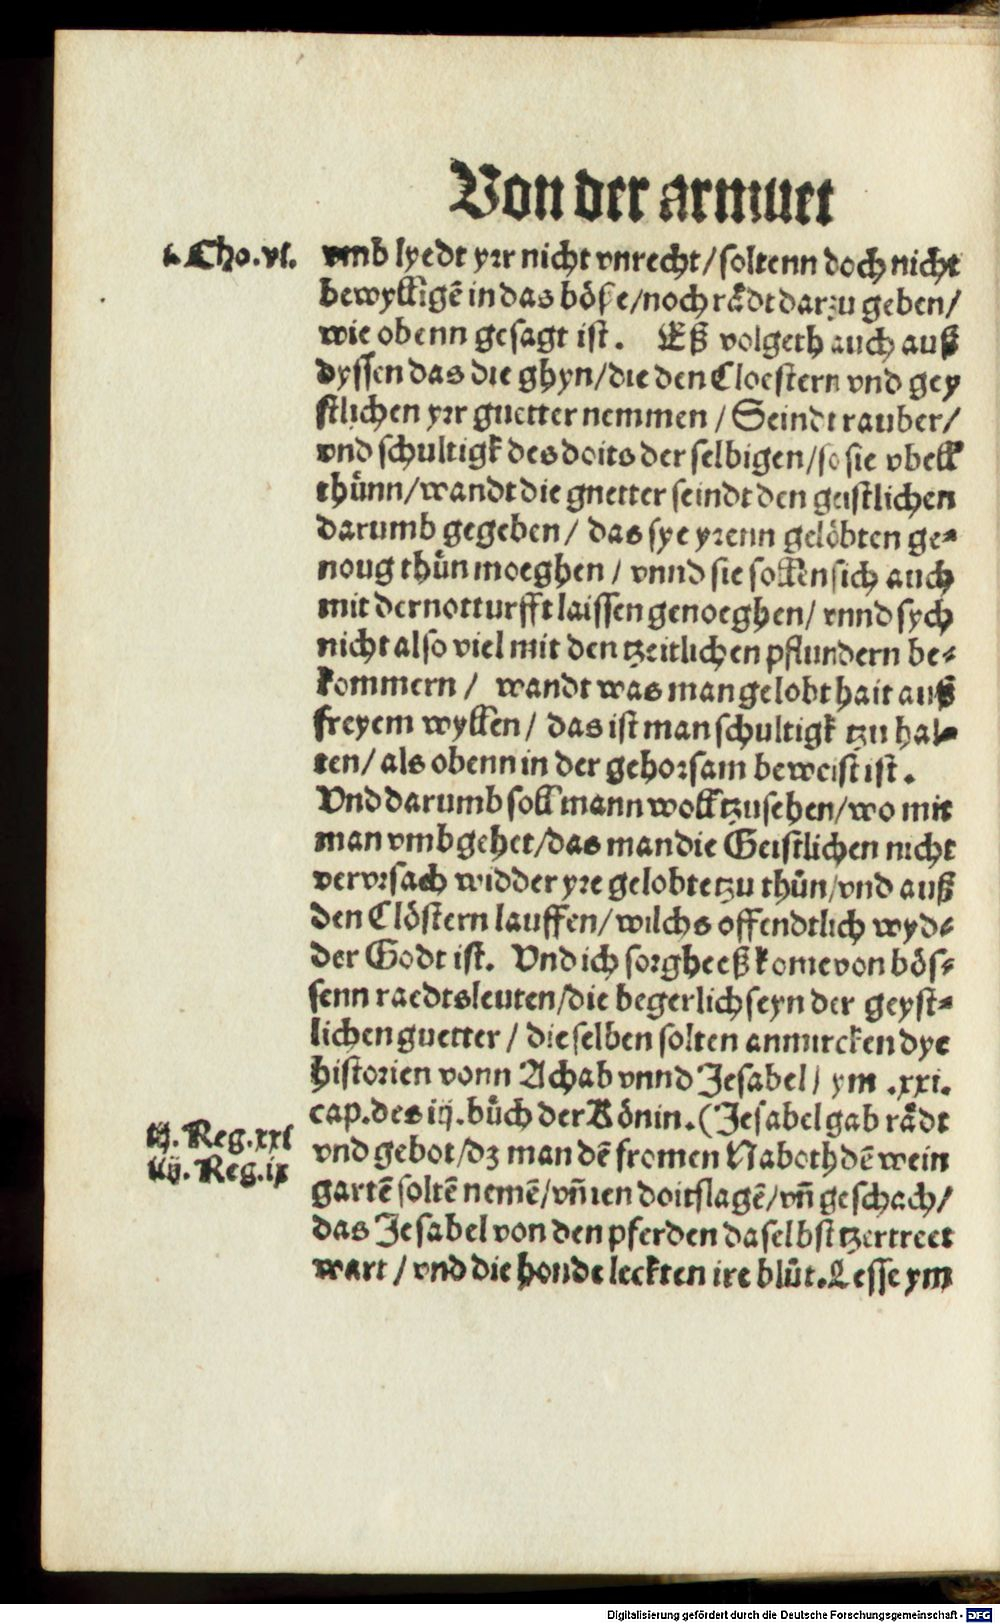 Von der armuet
i. Cho. vi.
vmb lyedt yrr nicht vnrecht/ soltenn doch nicht
bewylligē in das böße/ noch rådt darzu geben/
wie obenn gesagt ist. Eß volgeth auch auß
dyssen das die ghyn/ die den Cloestern vnd gey
stlichen yrr guetter nemmen / Seindt rauber/
vnd schultigk des doits der selbigen/ so sie vbell
thünn/ wandt die gnetter seindt den geistlichen
darumb gegeben/ das sye yrenn gelöbten ge⸗
noug thün moeghen / vnnd sie sollen sich auch
mit der notturfft laissen genoeghen/ vnnd sych
nicht also viel mit den tzeitlichen pflundern be⸗
kommern / wandt was man gelobt hait auß
freyem wyllen/ das ist man schultigk tzu hal⸗
ten/ als obenn in der gehorsam beweist ist.
Vnd darumb soll mann woll tzusehen/ wo mit
man vmbgehet/ das man die Geistlichen nicht
vervrsach widder yre gelobte tzu thün/ vnd auß
den Clöstern lauffen/ wilchs offendtlich wyd⸗
der Godt ist. Vnd ich sorghe eß kome von bös⸗
senn raedtsleuten/ die begerlich seyn der geyst⸗
lichen guetter / die selben solten anmircken dye
historien vonn Achab vnnd Jesabel/ ym .xxi.
cap. des iij. büch der Könin. (Jesabel gab rådt
iij. Reg. xxi
vnd gebot/ dz man dē fromen Naboth dē wein
iiij. Reg. ix
gartē soltē nemē/ vñ ien doitslagē/ vñ geschach/
das Jesabel von den pferden daselbst tzertreet
wart / vnd die honde leckten ire blüt. Lesse ym
Digitalisierung gefördert durch die Deutsche Forschungsgemeinschaft - DFG